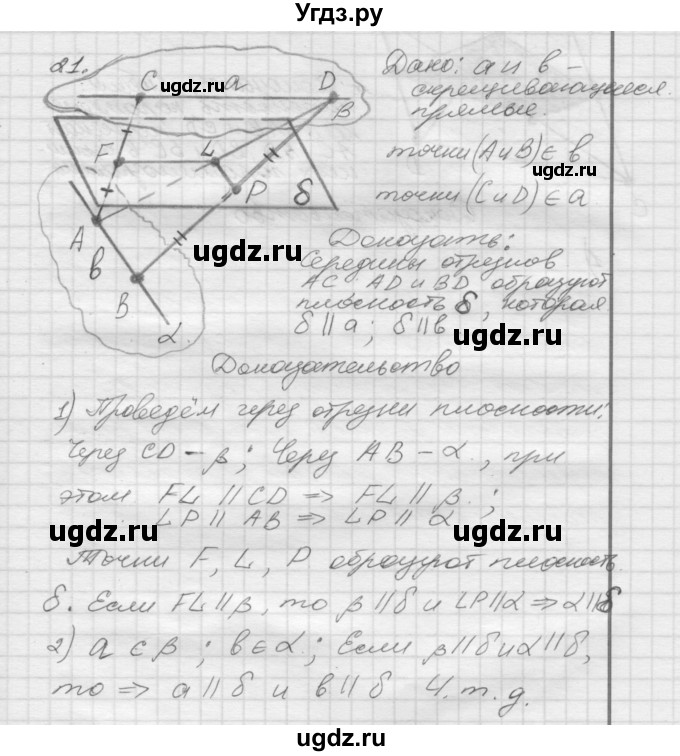 Угдз.ру
21.
C
a
D
ugdz.ru
β
Дано: a и b –
скрещивающиеся
прямые.
точки (A и B) ∈ b
точки (C и D) ∈ a
ugdz.ru
F
L
P
δ
A
b
B
α
ugdz.ru
Доказать:
Середины отрезков
AC, AD и BD, образуют
плоскость δ, которая
δ ∥ a; δ ∥ b
ugdz.ru
Доказательство
1) Проведём через отрезки плоскости:
Через CD – β; Через AB – α, при
этом FL ∥ CD => FL ∥ β;
LP ∥ AB => LP ∥ α
ugdz.ru
ugdz.ru
Точки F, L, P образуют плоскость
δ. Если FL ∥ β, то β ∥ δ и LP ∥ α => α ∥ δ
2) a ∈ β; b ∈ α; Если β ∥ δ и α ∥ δ,
то => a ∥ δ и b ∥ δ Ч.т.д.
ugdz.ru
ugdz.ru